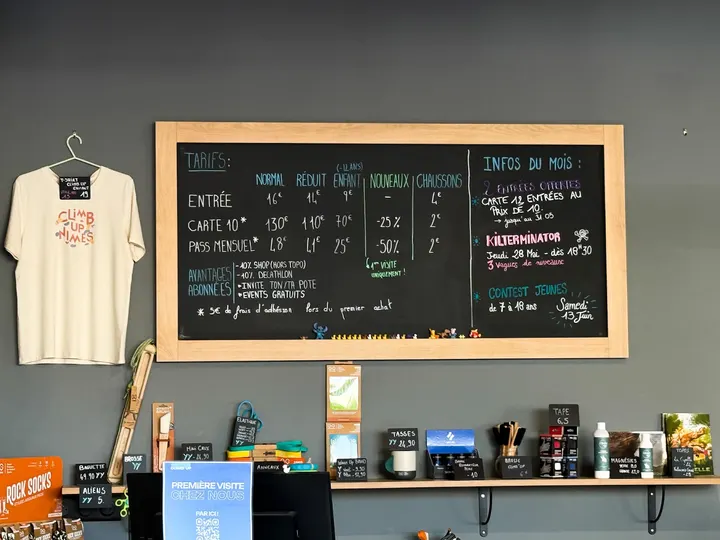 TARIFS:
NORMAL RÉDUIT ENFANT (-12 ANS) NOUVEAUX CHAUSSONS
ENTRÉE 16€ 14€ 9€ - 4€
CARTE 10* 130€ 110€ 70€ -25% 2€
PASS MENSUEL* 48€ 41€ 25€ -50% 2€
1ère VISITE
UNIQUEMENT!
AVANTAGES
ABONNÉES
-10% SHOP (HORS TOPO)
-10% DECATHLON
INVITE TON/TA POTE
EVENTS GRATUITS
* 5€ de frais d'adhésion lors du premier achat
INFOS DU MOIS :
2 ENTRÉES OFFERTES
CARTE 12 ENTRÉES AU
PRIX DE 10.
→ jusqu'au 31.05
KILTERMINATOR
Jeudi 28 Mai - dès 18h30
3 vagues de
CONTEST JEUNES
de 7 à 18 ans
Samedi
13 Juin
T-SHIRT
CLIMB UP
CLIMB
UP
NIMES
ROCK SOCKS
ALIENS
5.
BROSSE
ÉLASTIQUE
ANNEAUX
PREMIÈRE VISITE
CHEZ NOUS
PAR ICI
TASSES
24,90
TAPE
6,5
MAGNÉSIES
TOPOS